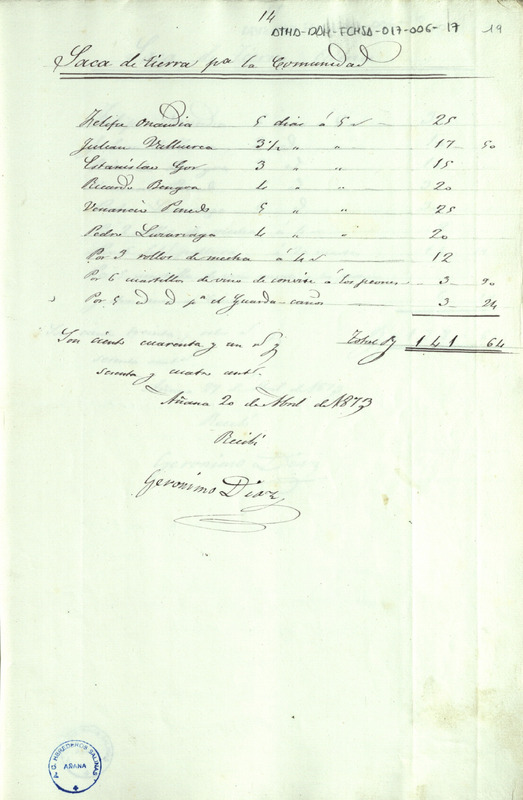 14
ATHA-DAH-FCHSA-017-006-17
19
Saca de tierra pa la Comunidad
Felipe Onandia 5 dias á 5 r 25
Julian Valluerca 3 1/2 " " 17 50
Estanislao Gor 3 " " 15
Ricardo Bengoa 4 " " 20
Venancio Pinedo 5 " " 25
Pedro 4 " " 20
Por 3 rollos de mecha á 4 r 12
Por 6 cuartillos de vino de convite á los peones 3 90
Por 5 d d pa el Guarda-caños 3 24
Son ciento cuarenta y un r y Total 141 64
sesenta y cuatro cents.
Añana 20 de Abril de 1873
Recibi
Geronimo Diaz
A.C. HEREDEROS SALINAS
AÑANA